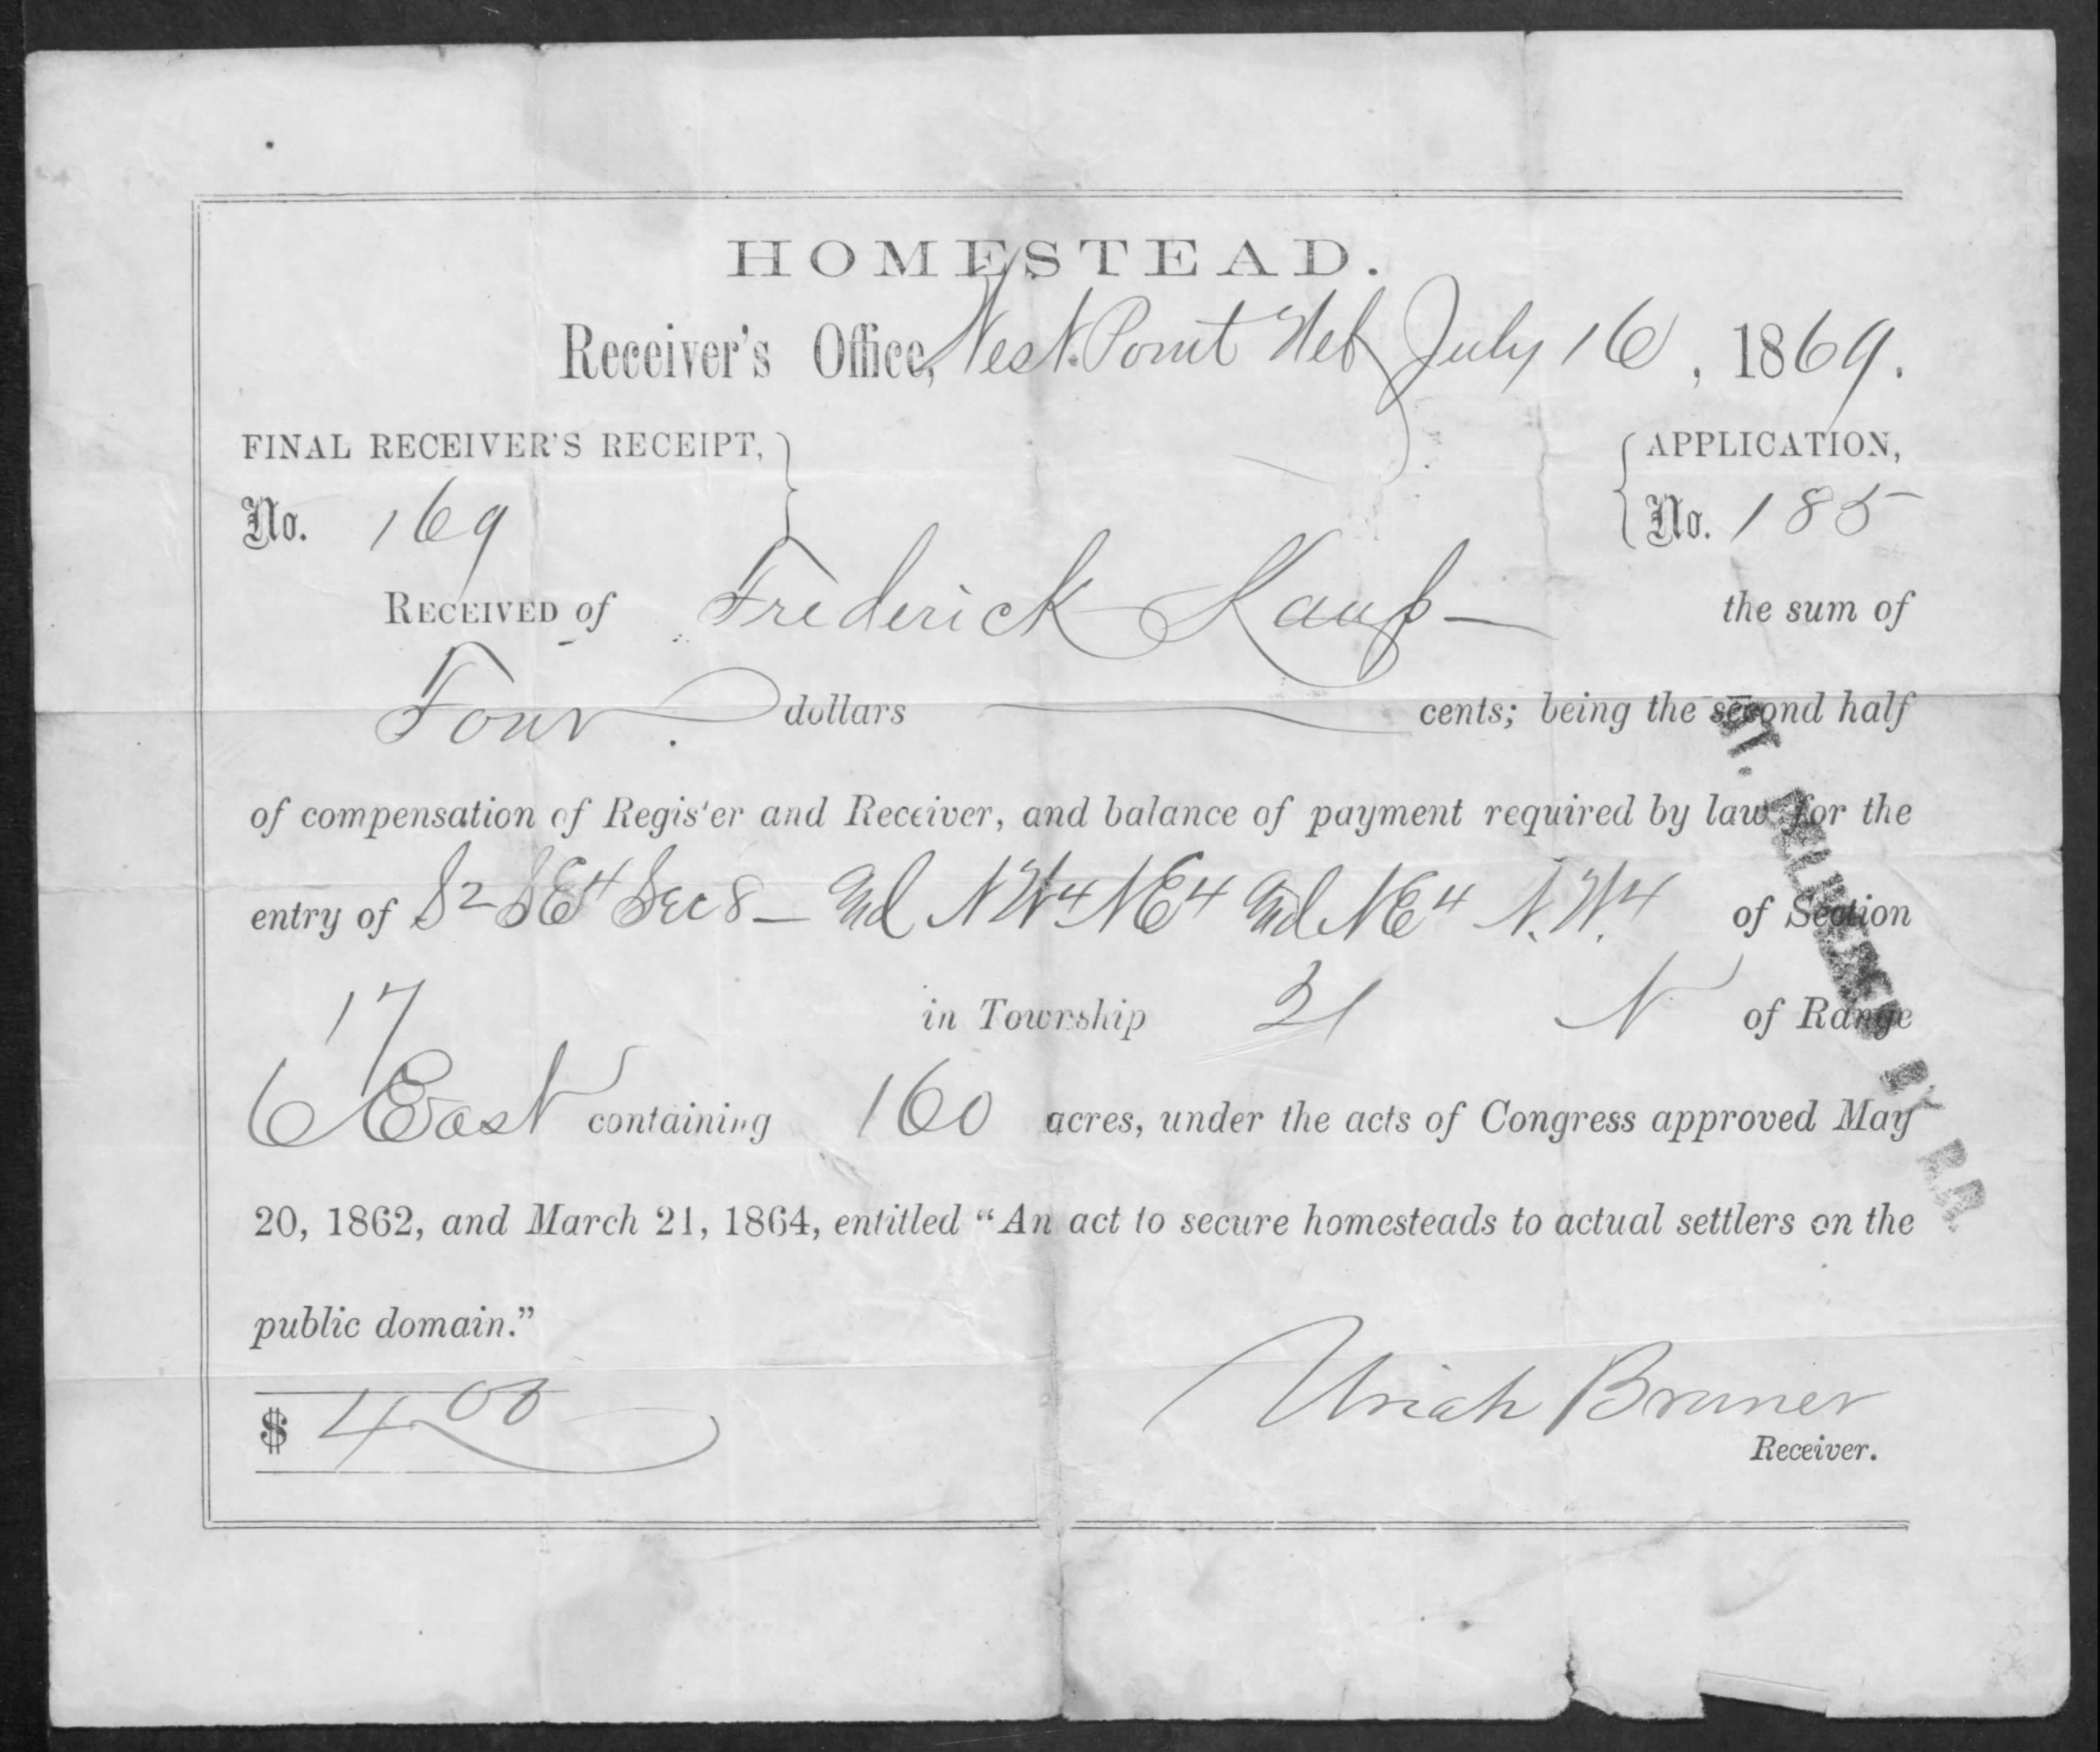 HOMESTEAD.
Receiver's Office, West Point Neb July 16, 1869.
FINAL RECEIVER'S RECEIPT, APPLICATION,
No. 169 No. 185
RECEIVED of Frederick Kauf the sum of
Four dollars cents; being the second half
of compensation of Register and Receiver, and balance of payment required by law for the
entry of S2 SE4 Sec 8 — And NW4 NE4 And NE4 N.W.4 of Section
17 in Township 21 N of Range
6 East containing 160 acres, under the acts of Congress approved May
20, 1862, and March 21, 1864, entitled “An act to secure homesteads to actual settlers on the
public domain.”
$ 4 00 Uriah Bruner
Receiver.